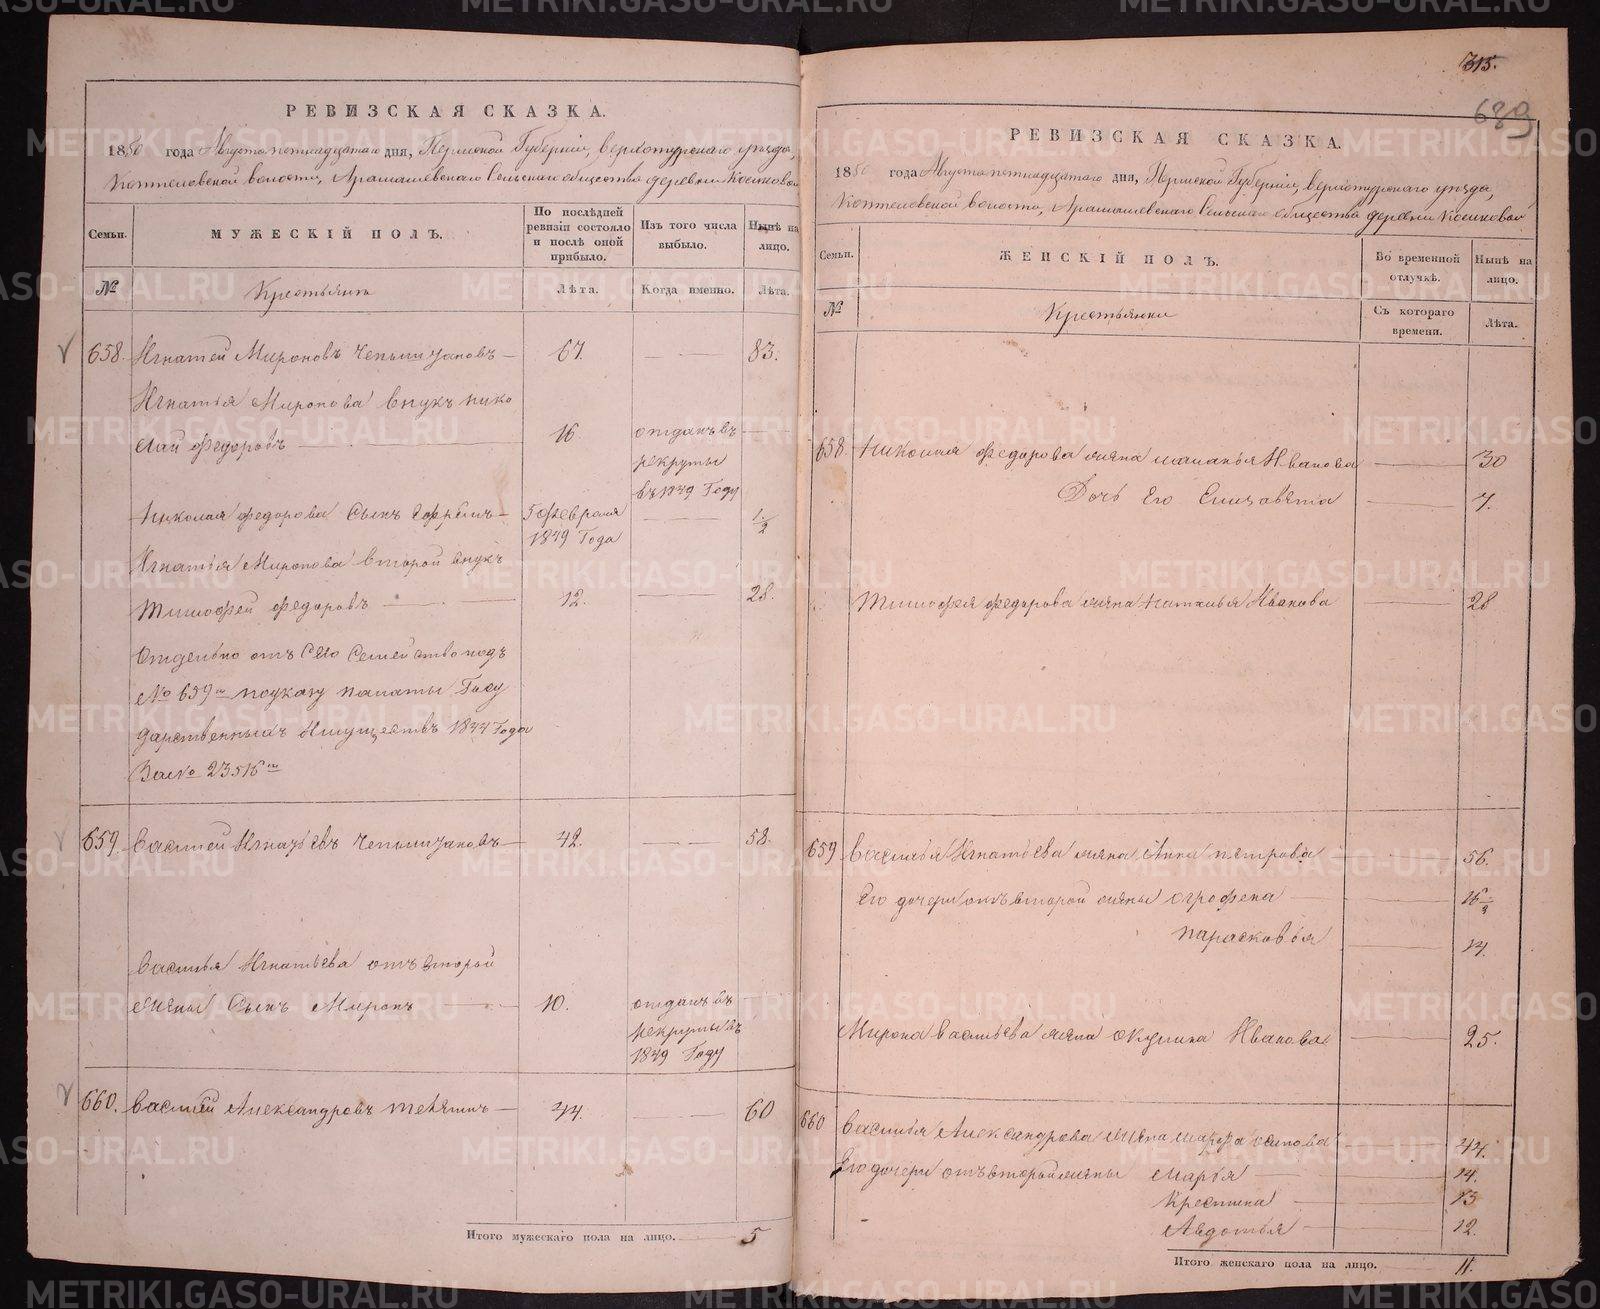 РЕВИЗСКАЯ СКАЗКА.
1850 года Августа пятнадцатаго дня, Пермской Губерніи, Верхотурскаго уезда,
Коптеловской волости, Арамашевскаго Сельскаго общества деревни Косиковой
Семьи.
МУЖЕСКІЙ ПОЛЪ.
По послѣдней ревизіи состояло и послѣ оной прибыло.
Изъ того числа выбыло.
Нынѣ на лицо.
№
Крестьянъ
Лѣта.
Когда именно.
Лѣта.
658. Игнатей Мироновъ 67. 83.
Игнатья Миронова внукъ Нико
лай Федоровъ 16 отданъ въ
рекруты
въ 1849 Году
Николая Федорова Сынъ Ефремъ 5 Февраля 1/2
1849 Года
Игнатья Миронова второй внукъ
Тимофей Федоровъ 12. 28.
Отдельно отъ Сего Семейство подъ
№ 659 по указу палаты Госу
дарственныхъ Имуществъ 1844 Года
За № 23516
659. Василей Игнатьевъ 42. 58.
Василья Игнатьева отъ второй
жены Сынъ Миронъ 10. отданъ въ
рекруты въ
1849 Году
660. Василей Александровъ 44. 60
Итого мужескаго пола на лицо. 5
315.
689
РЕВИЗСКАЯ СКАЗКА.
1850 года Августа пятнадцатаго дня, Пермской Губерніи, Верхотурскаго уезда,
Коптеловской волости, Арамашевскаго Сельскаго общества деревни Косиковой
Семьи.
ЖЕНСКІЙ ПОЛЪ.
Во временной отлучкѣ.
Нынѣ на лицо.
№
Крестьянки
Съ котораго времени.
Лѣта.
658. Николая Федорова жена Маланья Иванова 30
Дочь Его Елизавета 7.
Тимофея Федорова жена Наталья Иванова 28
659 Василья Игнатьева жена Анна Петрова 56.
Его дочери отъ второй жены Огрофена
Парасковья 14.
Мирона Васильева жена Окулина Иванова 25.
660 Василья Александрова жена Марфа Осипова 44.
Его дочери отъ второй жены Марья 14.
Крестина 13
Авдотья 12.
Итого женскаго пола на лицо. 11.
METRIKI.GASO-URAL.RU